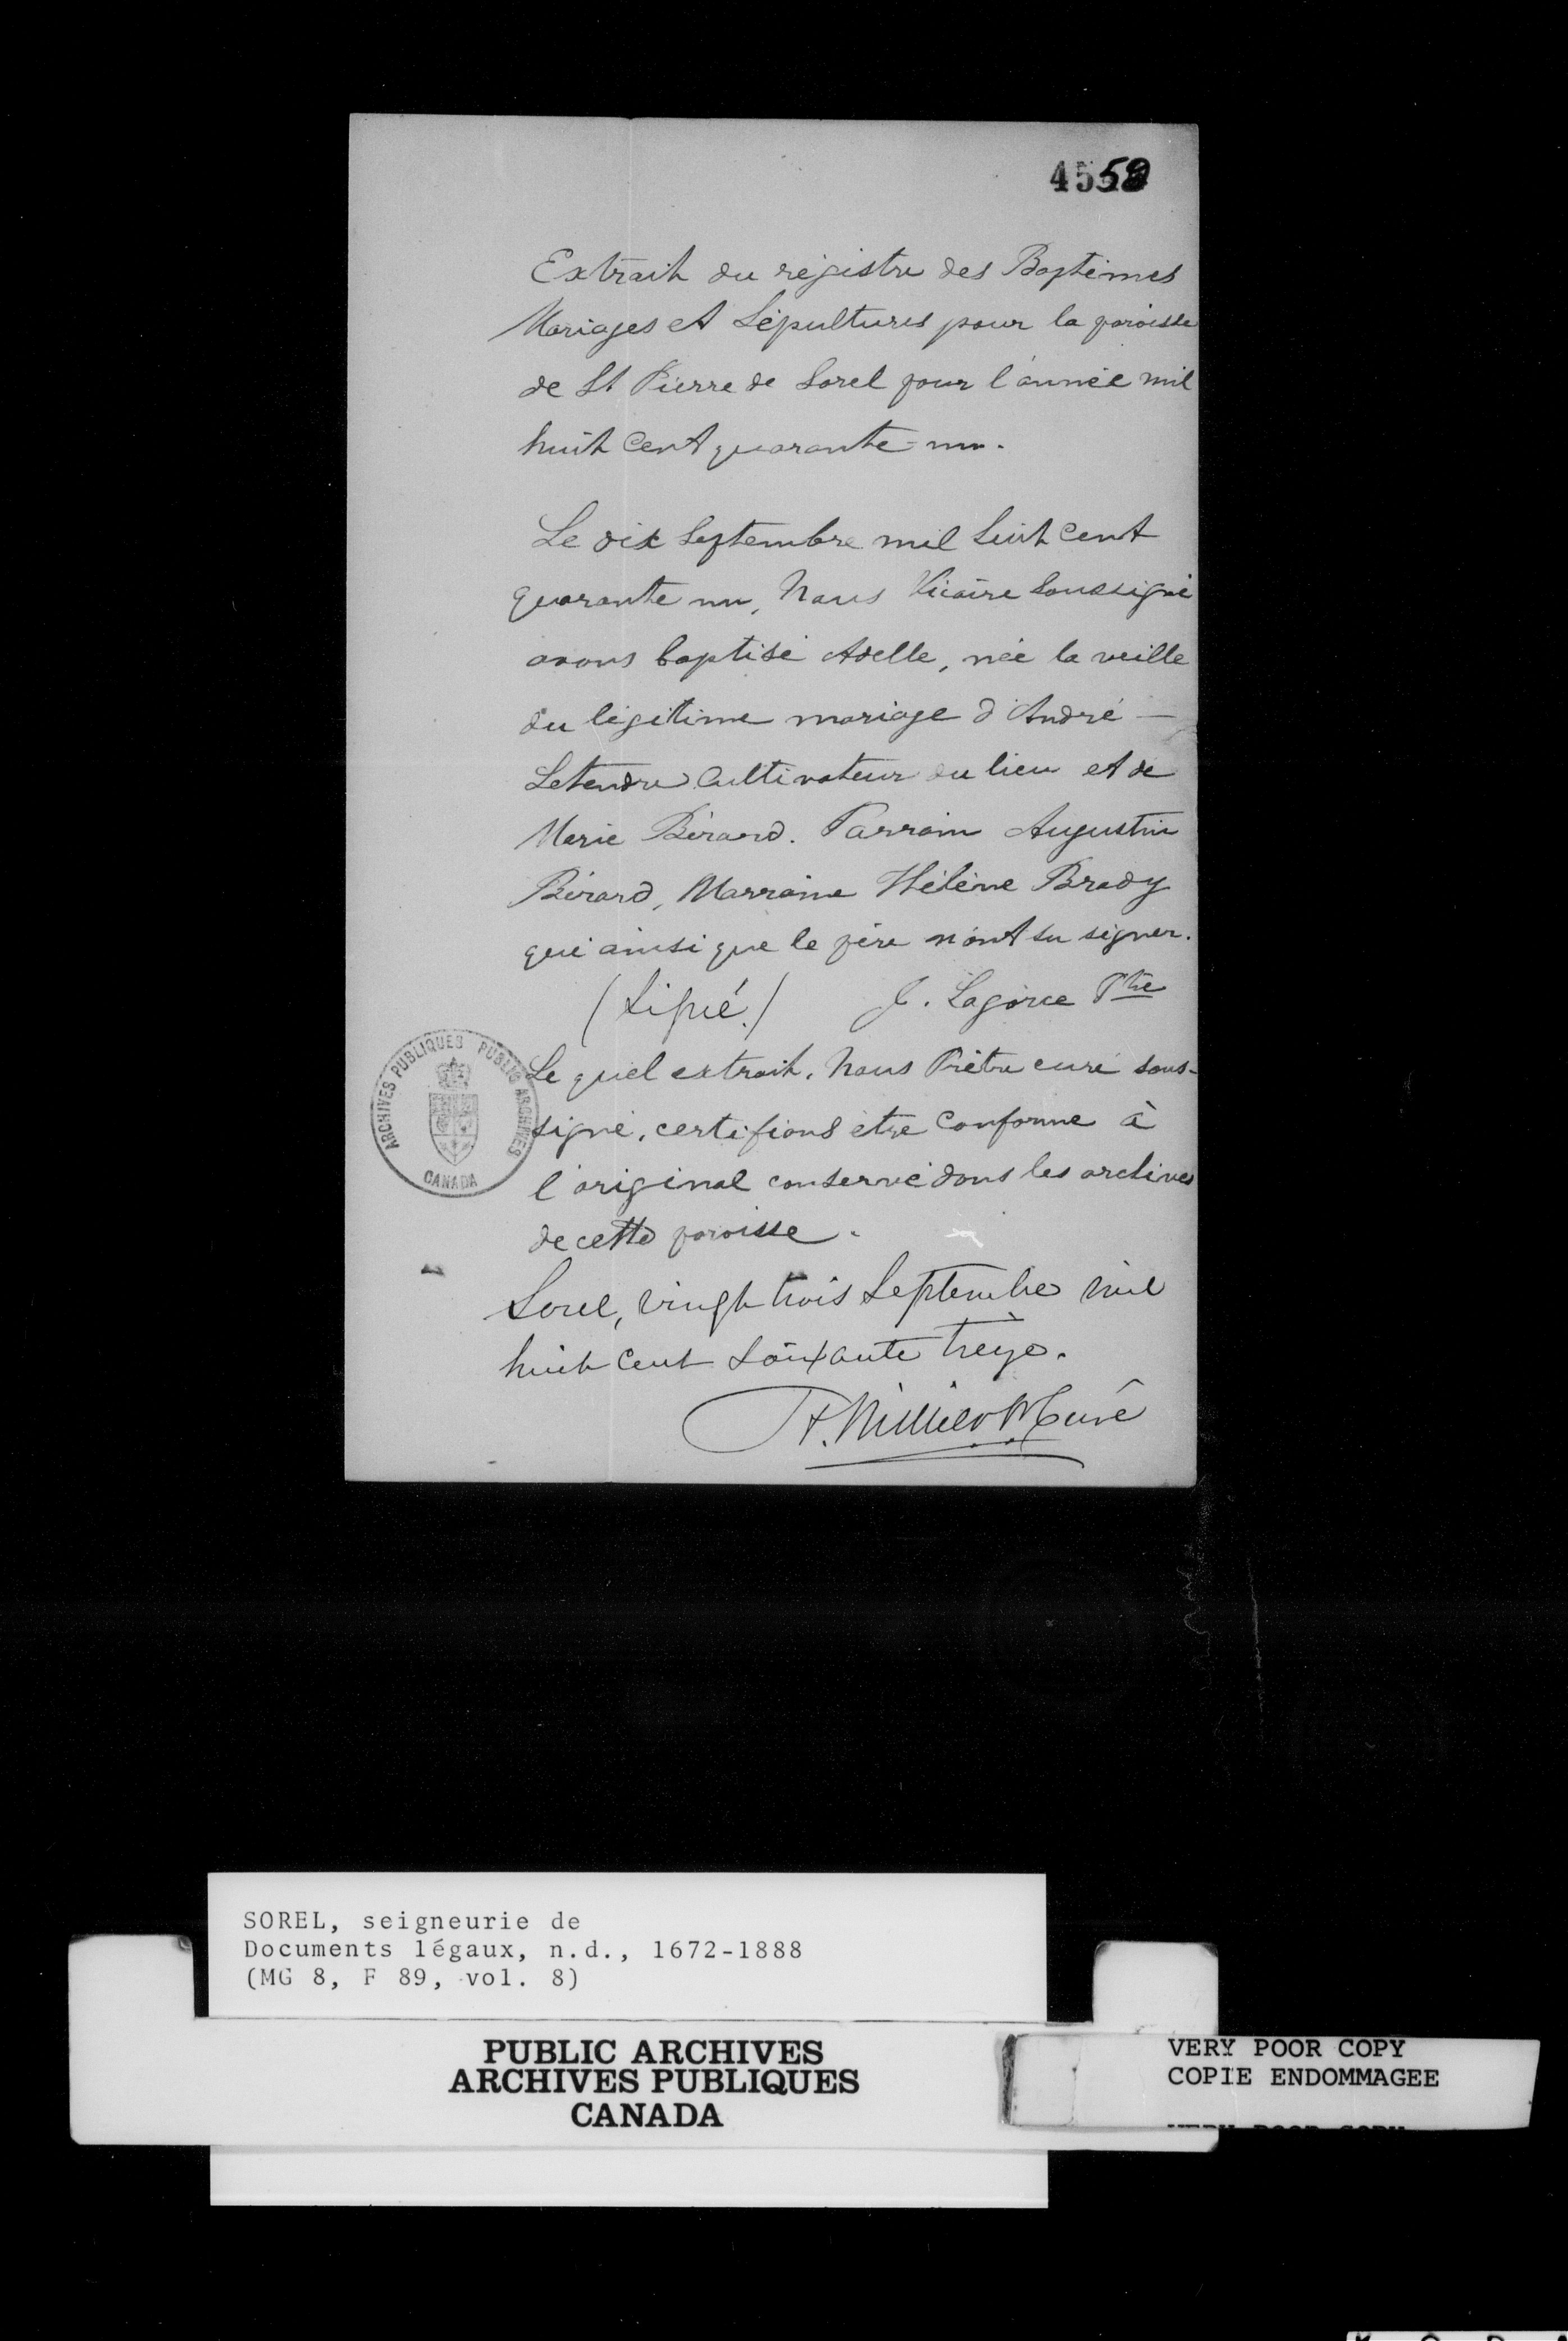 4558
Extrait du régistre des Baptêmes
Mariages et Sépultures pour la paroisse
de St Pierre de Sorel pour l'année mil
huit cent quarante-un.
Le dix Septembre mil huit cent
quarante un, Nous Vicaire Soussigné
avons baptisé Adelle, née la veille
du légitime mariage d'André —
Letendre Cultivateur du lieu et de
Marie Bérard. Parrain Augustin
Bérard, Marraine Hélène Brady
qui ainsi que le père n'ont su signer.
(Signé.) J. Lagorce Ptre
Le quel extrait, Nous Prêtre curé sous-
signé, certifions être Conforme à
l'original conservé dans les archives
de cette paroisse.
Sorel, vingt trois Septembre mil
huit cent soixante treize.
H. Millier Curé
ARCHIVES PUBLIQUES PUBLIC ARCHIVES
CANADA
SOREL, seigneurie de
Documents légaux, n.d., 1672-1888
(MG 8, F 89, vol. 8)
PUBLIC ARCHIVES
ARCHIVES PUBLIQUES
CANADA
VERY POOR COPY
COPIE ENDOMMAGEE
VERY POOR COPY